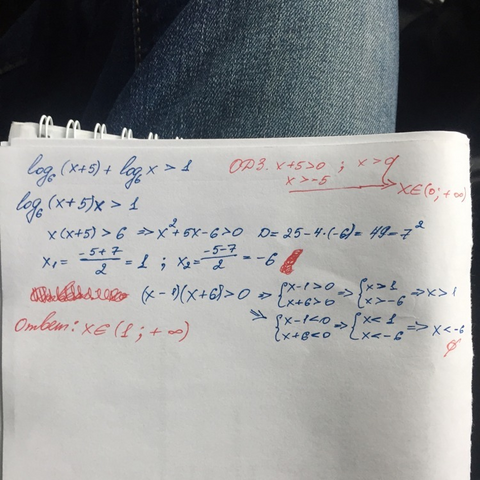 log₆(x+5) + log₆ x > 1 ОДЗ. x+5>0 ; x>0
x>-5 x∈(0; +∞)
log₆(x+5)x > 1
x(x+5) > 6 => x²+5x-6>0 D=25-4·(-6)=49=7²
x₁ = (-5+7)/2 = 1 ; x₂ = (-5-7)/2 = -6
(x-1)(x+6)>0 => {x-1>0 x+6>0 => {x>1 x>-6 => x>1
=> {x-1<0 x+6<0 => {x<1 x<-6 => x<-6
∅
Ответ: x∈(1; +∞)